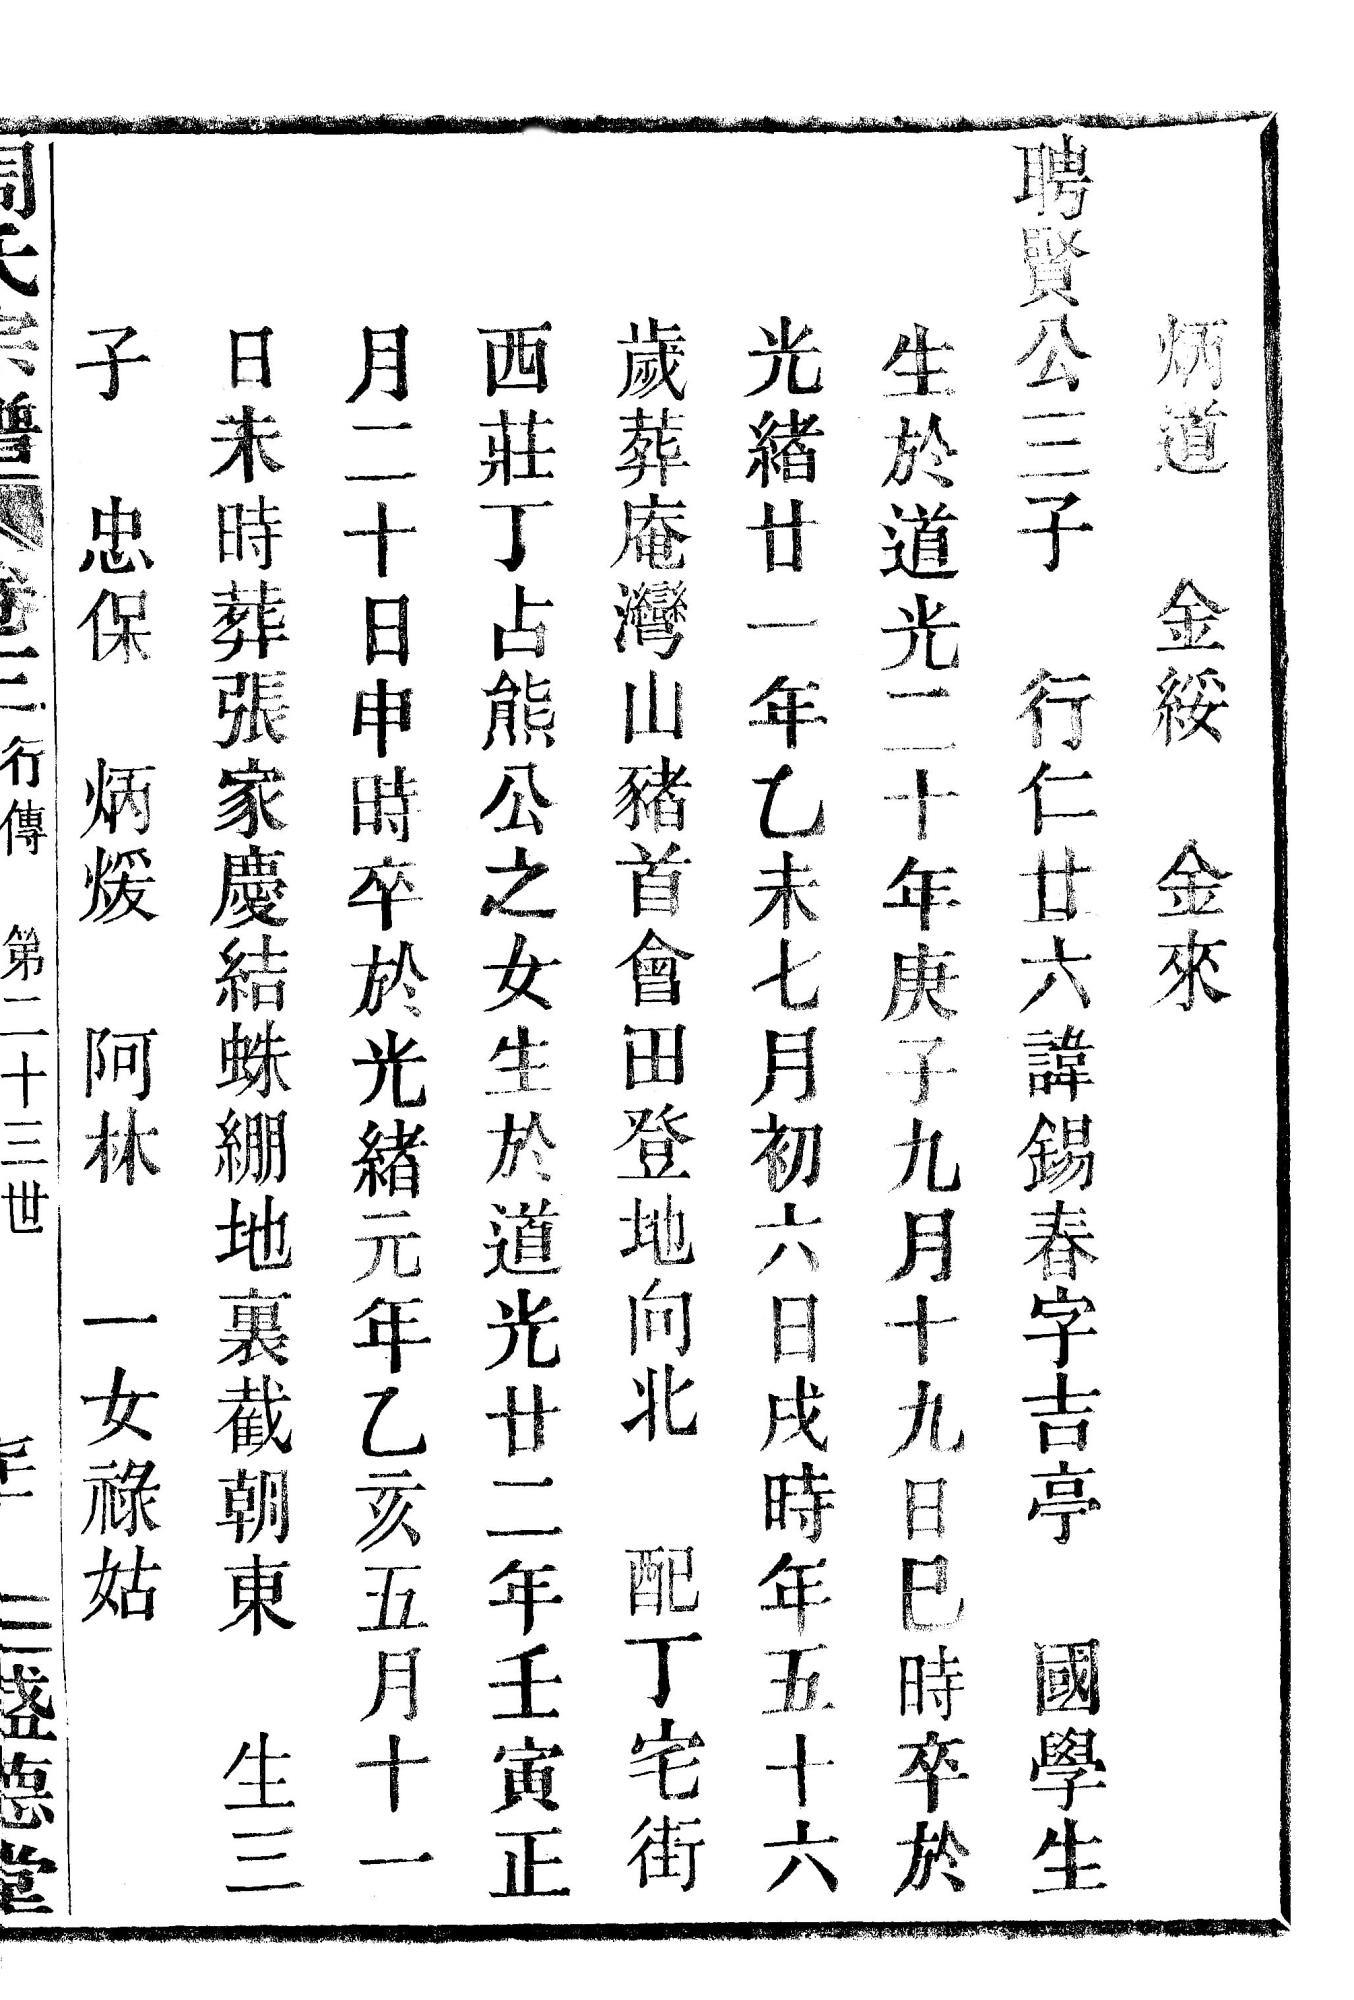 炳道　金綏　金來
聘賢公三子　行仁廿六諱錫春字吉亭　國學生
生於道光二十年庚子九月十九日巳時卒於
光緒廿一年乙未七月初六日戌時年五十六
歲葬庵灣山豬首會田登地向北　配丁宅街
西莊丁占熊公之女生於道光廿二年壬寅正
月二十日申時卒於光緒元年乙亥五月十一
日未時葬張家慶結蛛綳地裏截朝東　生三
子　忠保　炳煖　阿林　一女祿姑
周氏宗譜　卷二　行傳　第二十三世　三　盛德堂